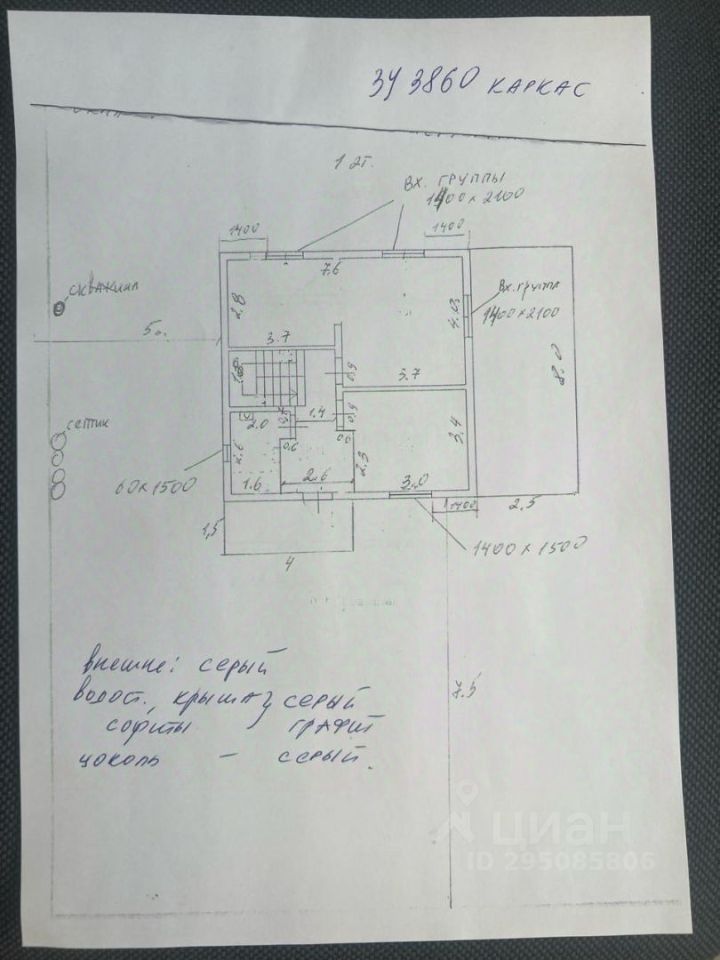 ЗУ 3860 КАРКАС
1 эт.
ВХ. ГРУППЫ
1400 х 2100
1400
1400
7.6
скважина
2.8
4.3
Вх. группа
1400×2100
5
3.7
0.9
8.0
5.7
септик
2.0
0.9
1.4
3.4
0.6
2.3
60×1500
1.6
2.6
3.0
1400
2.5
1,5
1400 х 1500
4
внешне: серый
водост., крыша } серый
софиты графит
цоколь – серый.
7.5
циан
ID 295085806